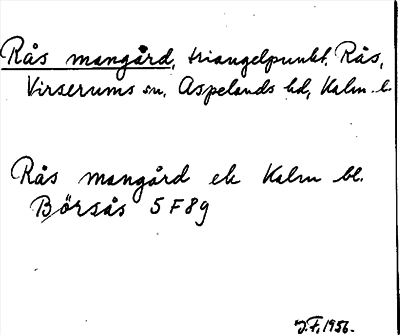 Rås mangård, triangelpunkt, Rås,
Virserums sn, Aspelands hd, Kalm. l.
Rås mangård ek Kalm bl.
Börsås 5F8g
J.F. 1956.